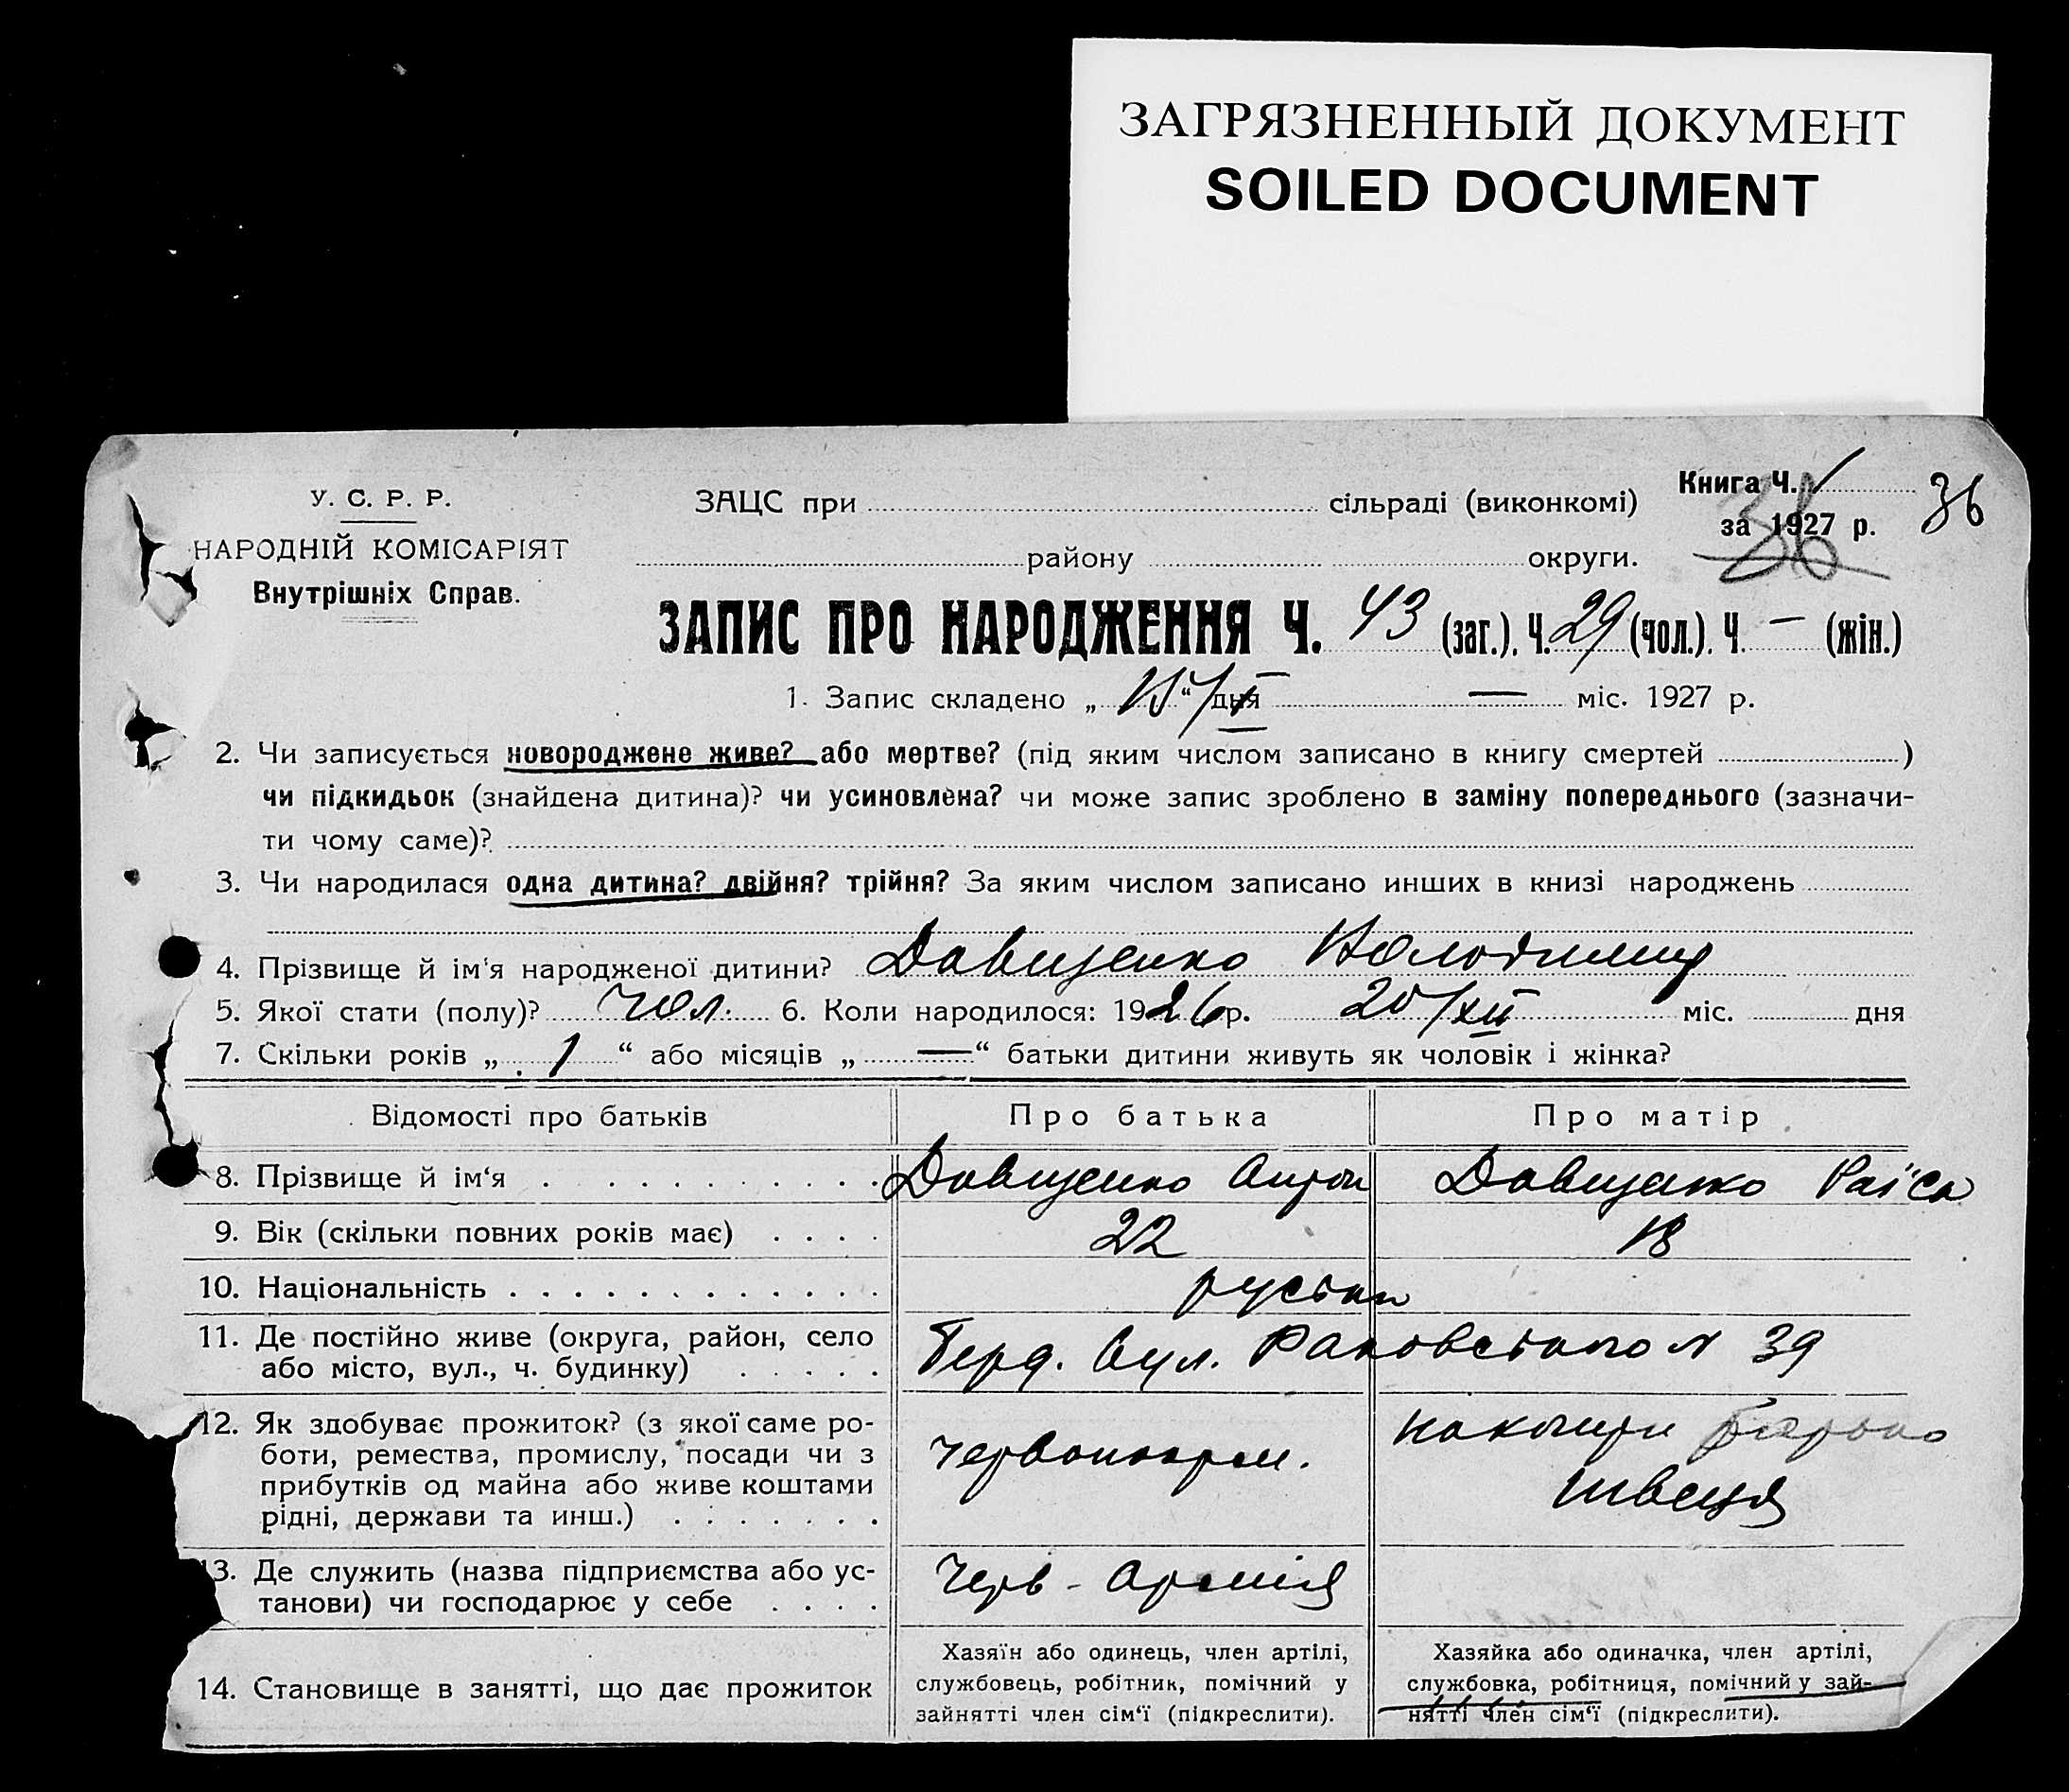 ЗАГРЯЗНЕННЫЙ ДОКУМЕНТ
SOILED DOCUMENT
У. С. Р. Р.
НАРОДНІЙ КОМІСАРІЯТ
Внутрішніх Справ.
ЗАЦС при сільраді (виконкомі)
району округи.
Книга Ч.
за 1927 р. 36
36
ЗАПИС ПРО НАРОДЖЕННЯ Ч. 43 (заг.). Ч. 29 (чол.). Ч. — (жін.)
1. Запис складено „ 15 “ / I дня — міс. 1927 р.
2. Чи записується новороджене живе? або мертве? (під яким числом записано в книгу смертей )
чи підкидьок (знайдена дитина)? чи усиновлена? чи може запис зроблено в заміну попереднього (зазначи-
ти чому саме)?
3. Чи народилася одна дитина? двійня? трійня? За яким числом записано инших в книзі народжень
4. Прізвище й ім‘я народженої дитини? Давиденко Володимир
5. Якої стати (полу)? чол. 6. Коли народилося: 1926 р. 20/XII міс. дня
7. Скільки років „ 1 “ або місяців „ — “ батьки дитини живуть як чоловік і жінка?
Відомості про батьків Про батька Про матір
8. Прізвище й ім‘я Давиденко Антон Давиденко Раїса
9. Вік (скільки повних років має) 22 18
10. Національність руськи
11. Де постійно живе (округа, район, село
або місто, вул., ч. будинку)
Берд. Вул. Раковського № 39
12. Як здобуває прожиток? (з якої саме ро-
боти, ремества, промислу, посади чи з
прибутків од майна або живе коштами
рідні, держави та инш.)
Червоноарм.
на кошти батька
швеця
13. Де служить (назва підприємства або ус-
танови) чи господарює у себе
Черв - Армія
14. Становище в занятті, що дає прожиток
Хазяїн або одинець, член артілі,
службовець, робітник, помічний у
зайнятті член сім‘ї (підкреслити).
Хазяйка або одиначка, член артілі,
службовка, робітниця, помічний у зай-
нятті член сім‘ї (підкреслити).